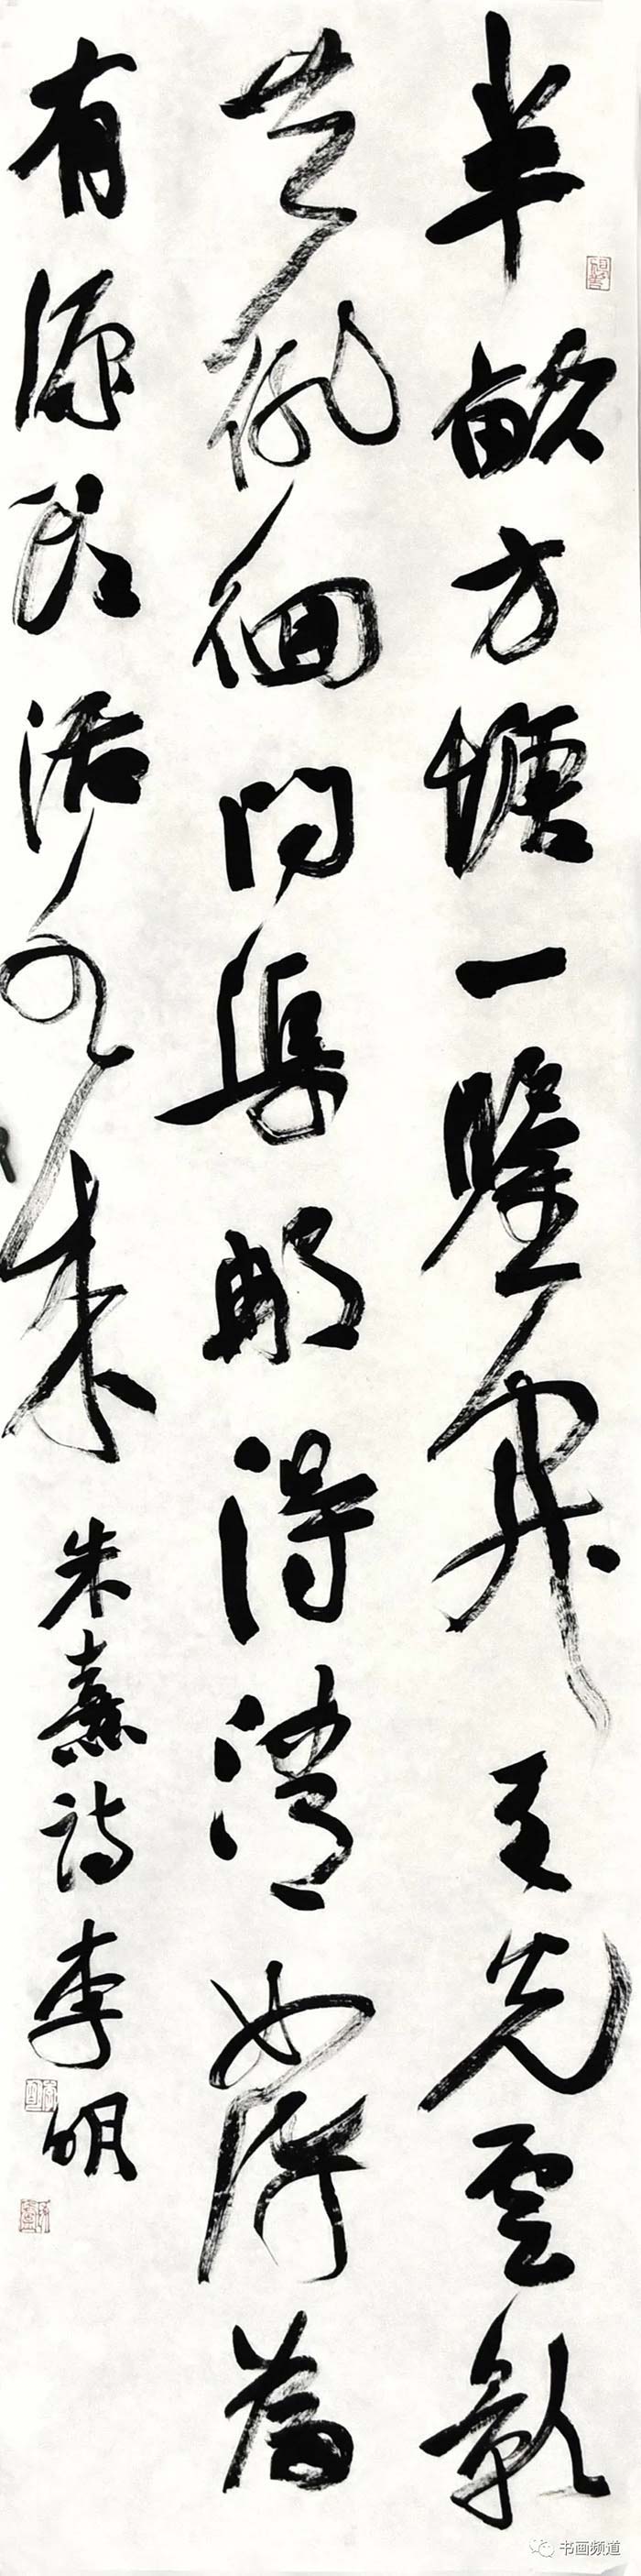 半畝方塘一鑒開天光雲影
共徘徊問渠那得清如許為
有源頭活水來朱熹詩李明
书画频道